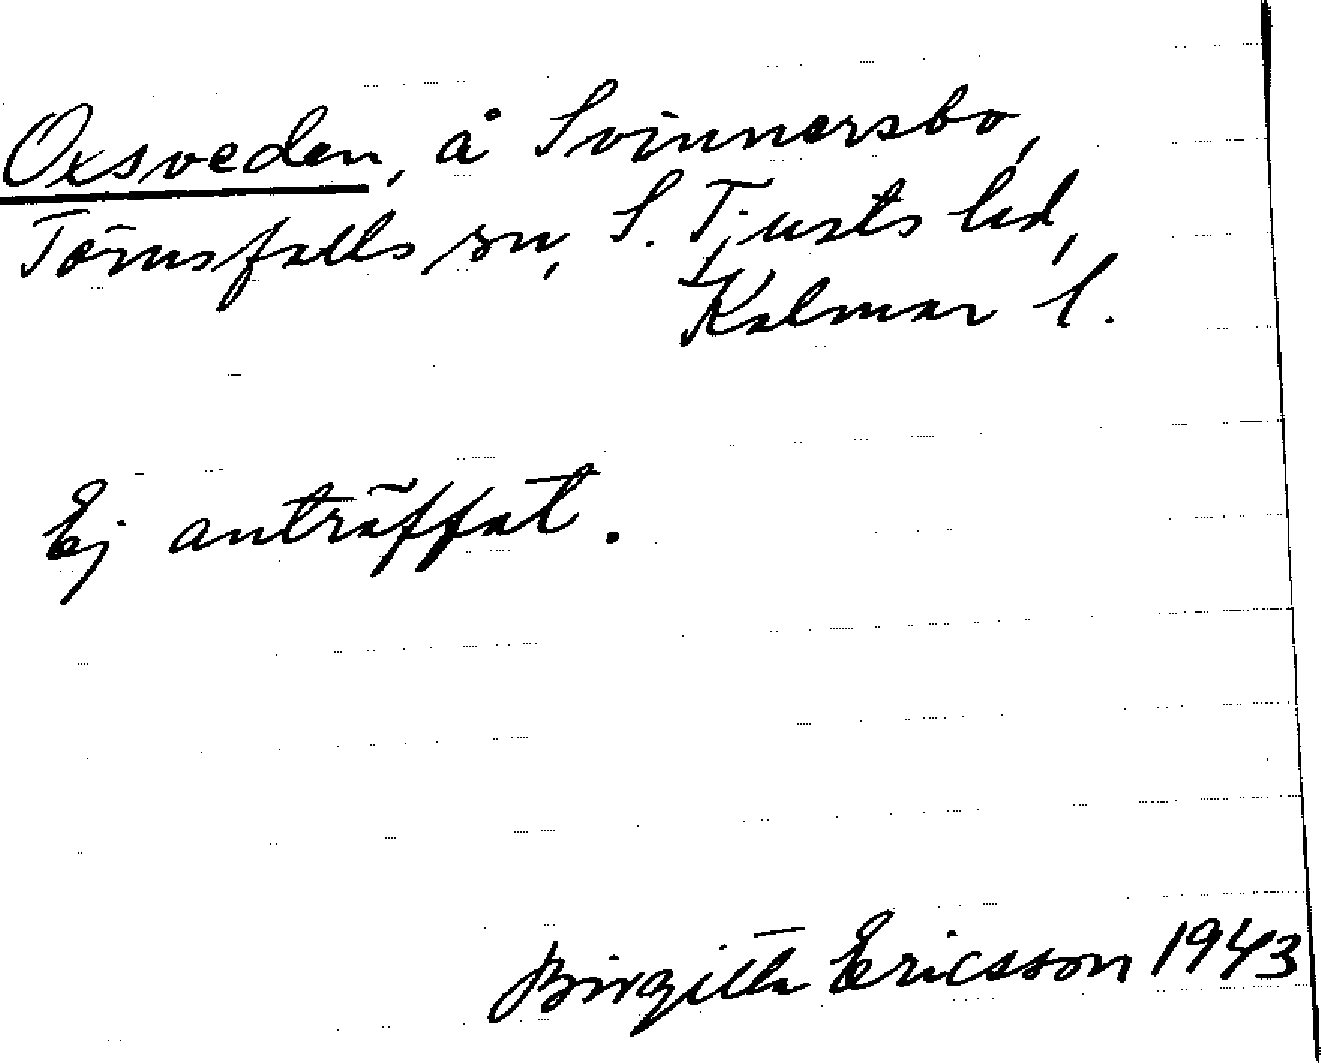 Oxsveden, å Svinnersbo,
Törnsfalls sn, S. Tjusts hd,
Kalmar l.
Ej anträffat.
Birgitta Ericsson 1943